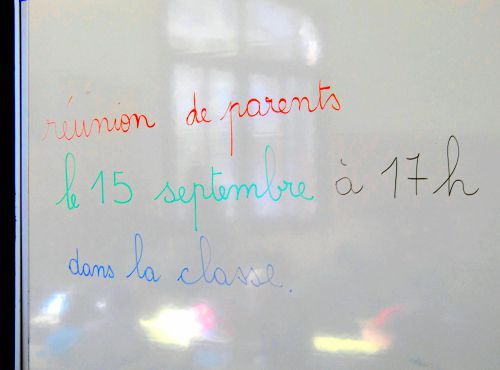 réunion de parents
le 15 septembre à 17 h
dans la classe.